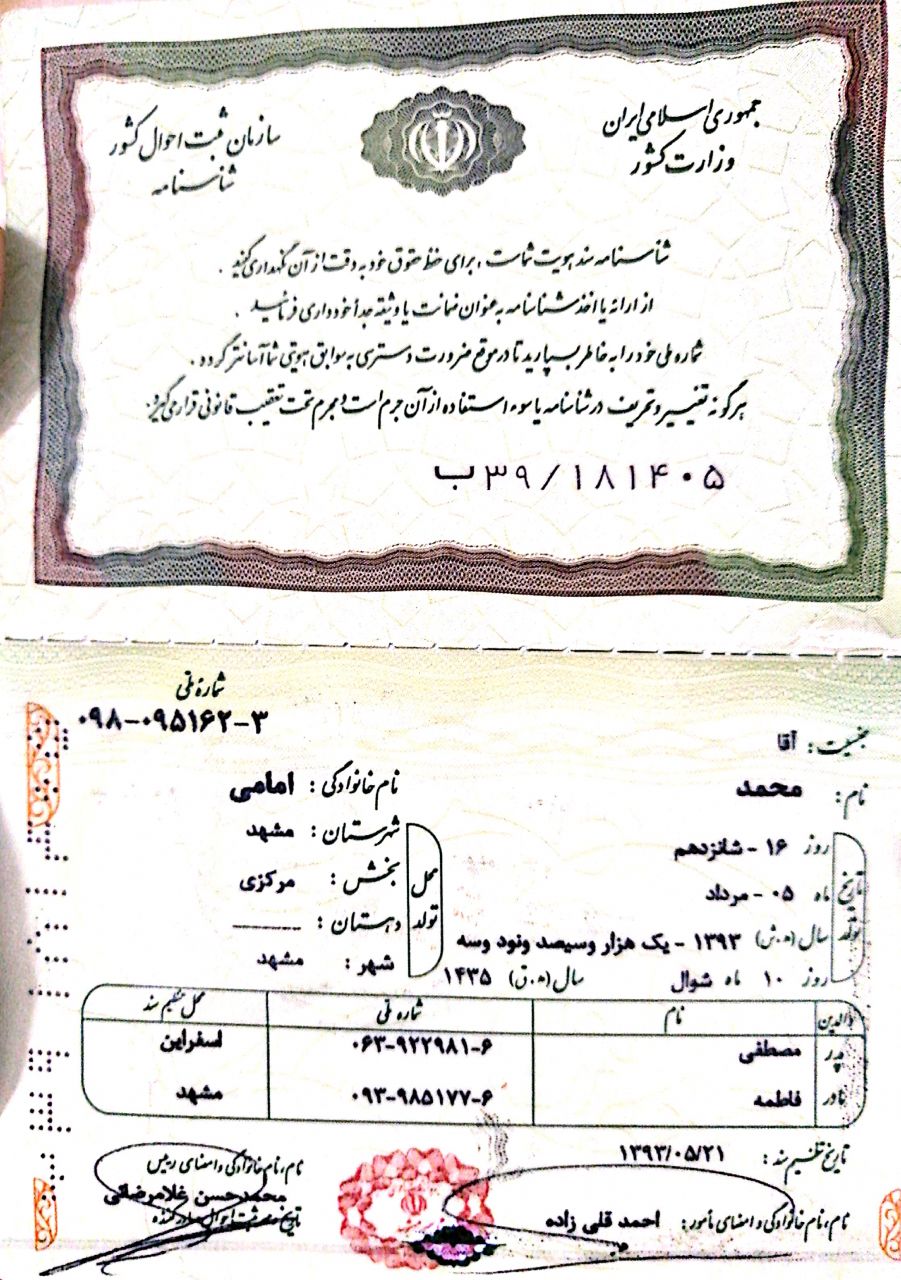 جمهوری اسلامی ایران
وزارت کشور
سازمان ثبت احوال کشور
شناسنامه
شناسنامه سند هویت شماست ، برای حفظ حقوق خود به دقت از آن نگهداری کنید .
از ارائه یا اخذ شناسنامه به عنوان ضمانت یا وثیقه جداً خودداری فرمائید .
شماره ملی خود را به خاطر بسپارید تا در موقع ضرورت دسترسی به سوابق هویتی شما آسانتر گردد .
هرگونه تغییر و تحریف در شناسنامه یا سوء استفاده از آن جرم است و مجرم تحت تعقیب قانونی قرار می‌گیرد .
ب۳۹/۱۸۱۴۰۵
شماره ملی
۰۹۸-۰۹۵۱۶۲-۳
جنسیت : آقا
نام : محمد
نام خانوادگی : امامی
تاریخ تولد
روز ۱۶ - شانزدهم
ماه ۰۵ - مرداد
سال (ه.ش) ۱۳۹۳ - یک هزار وسیصد ونود وسه
روز ۱۰ ماه شوال سال (ه.ق) ۱۴۳۵
محل تولد
شهرستان : مشهد
بخش : مرکزی
دهستان : ـــــــــ
شهر : مشهد
والدین نام شماره ملی محل تنظیم سند
پدر مصطفی ۰۶۳-۹۲۲۹۸۱-۶ اسفراین
مادر فاطمه ۰۹۳-۹۸۵۱۷۷-۶ مشهد
تاریخ تنظیم سند : ۱۳۹۳/۰۵/۲۱
نام، نام خانوادگی و امضای مأمور : احمد قلی زاده
نام، نام خانوادگی و امضای رئیس
محمدحسن غلامرضائی
ثبت احوال صادرکننده